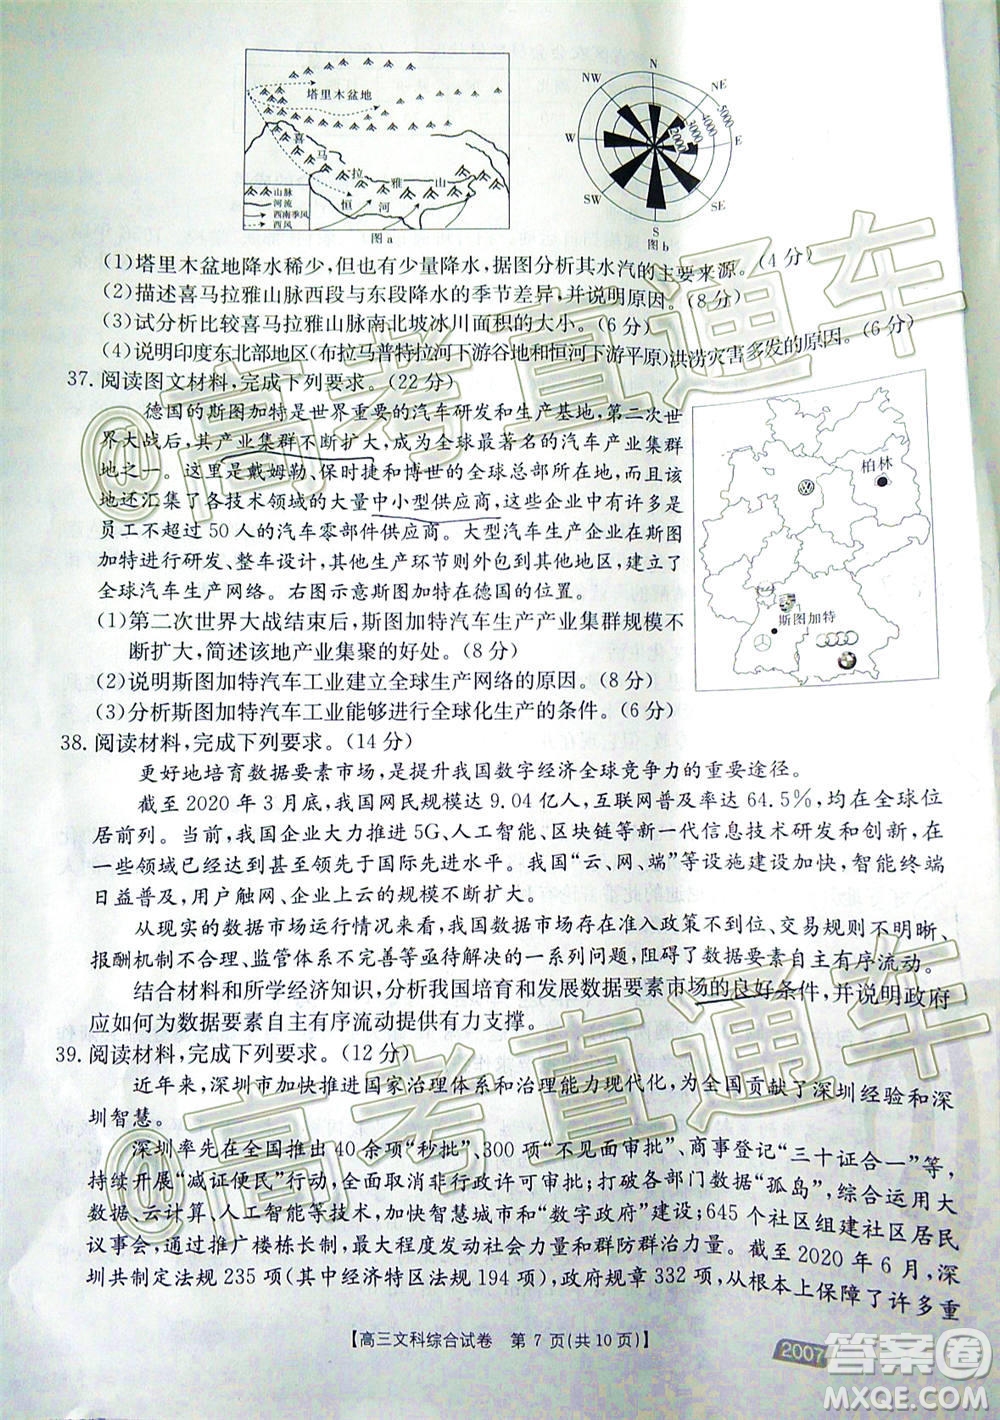 塔里木盆地
喜
马
拉
雅
山
恒
河
山脉
河流
西南季风
西风
图a
N
NE
E
SE
S
SW
W
NW
2000
3000
4000
5000
图b
(1)塔里木盆地降水稀少,但也有少量降水,据图分析其水汽的主要来源。(4分)
(2)描述喜马拉雅山脉西段与东段降水的季节差异,并说明原因。(8分)
(3)试分析比较喜马拉雅山脉南北坡冰川面积的大小。(6分)
(4)说明印度东北部地区(布拉马普特拉河下游谷地和恒河下游平原)洪涝灾害多发的原因。(6分)
37. 阅读图文材料,完成下列要求。(22分)
德国的斯图加特是世界重要的汽车研发和生产基地,第二次世
界大战后,其产业集群不断扩大,成为全球最著名的汽车产业集群
地之一。这里是戴姆勒、保时捷和博世的全球总部所在地,而且该
地还汇集了各技术领域的大量中小型供应商,这些企业中有许多是
员工不超过50人的汽车零部件供应商。大型汽车生产企业在斯图
加特进行研发、整车设计,其他生产环节则外包到国外,建立了
全球汽车生产网络。右图示意斯图加特在德国的位置。
柏林
斯图加特
(1)第二次世界大战结束后,斯图加特汽车生产产业集群规模不
断扩大,简述该地产业集聚的好处。(8分)
(2)说明斯图加特汽车工业建立全球生产网络的原因。(8分)
(3)分析斯图加特汽车工业能够进行全球化生产的条件。(6分)
38. 阅读材料,完成下列要求。(14分)
更好地培育数据要素市场,是提升我国数字经济全球竞争力的重要途径。
截至2020年3月底,我国网民规模达9.04亿人,互联网普及率达64.5%,均在全球位
居前列。当前,我国企业大力推进5G、人工智能、区块链等新一代信息技术研发和创新,在
一些领域已经达到甚至领先于国际先进水平。我国“云、网、端”等设施建设加快,智能终端
日益普及,用户触网、企业上云的规模不断扩大。
从现实的数据市场流动情况来看,我国数据市场存在准入政策不明朗、交易规则不明晰、
报酬机制不合理、监管体系不完善等亟待解决的一系列问题,阻碍了数据要素自主有序流动。
结合材料和所学经济知识,分析我国培育和发展数据要素市场的良好条件,并说明政府
应如何为数据要素自主有序流动提供有力支撑。
39. 阅读材料,完成下列要求。(12分)
近年来,深圳市加快推进国家治理体系和治理能力现代化,为全国贡献了深圳经验和深
圳智慧。
深圳率先在全国推出40余项“秒批”、300项“不见面审批”、商事登记“三十证合一”等,
持续开展“减证便民”行动,全面取消非行政许可审批;打通各部门数据“孤岛”,综合运用大
数据、云计算、人工智能等技术,加快智慧城市和“数字政府”建设;645个社区组建社区居民
议事会,通过推广楼栋长制、最大程度发动社会专业组织和群防群治力量。截至2020年6月,深
圳共制定法规235项(其中经济特区法规194项),政府规章332项,从根本上保障了许多重
【高三文科综合试卷 第7页(共10页)】
2007
@高考直通车
@高考直通车
答案圈
MXQE.COM